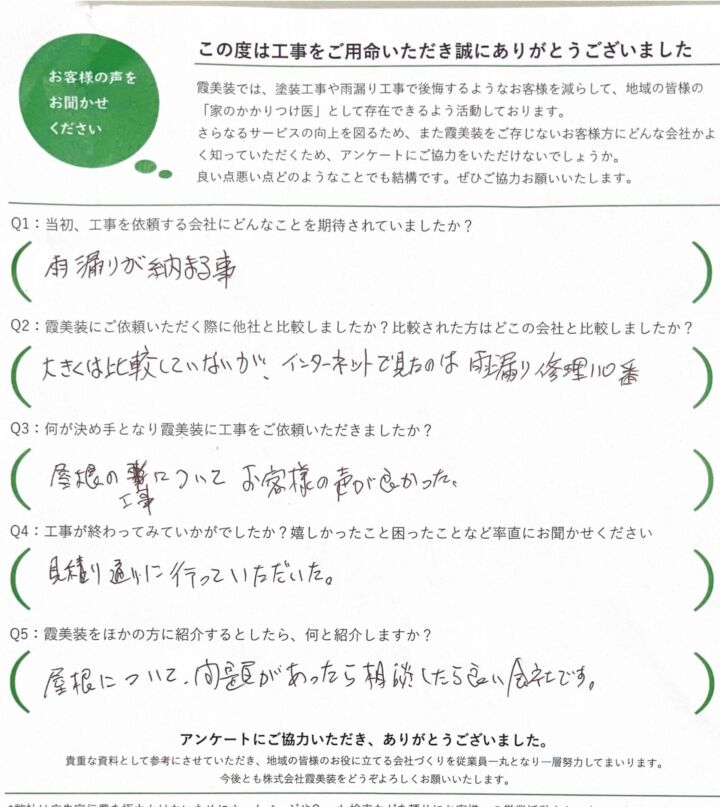 お客様の声を
お聞かせ
ください
この度は工事をご用命いただき誠にありがとうございました
霞美装では、塗装工事や雨漏り工事で後悔するようなお客様を減らして、地域の皆様の
「家のかかりつけ医」として存在できるよう活動しております。
さらなるサービスの向上を図るため、また霞美装をご存じないお客様方にどんな会社かよ
く知っていただくため、アンケートにご協力をいただけないでしょうか。
良い点悪い点どのようなことでも結構です。ぜひご協力お願いいたします。
Q1：当初、工事を依頼する会社にどんなことを期待されていましたか？
雨漏りが納まる事
Q2：霞美装にご依頼いただく際に他社と比較しましたか？比較された方はどこの会社と比較しましたか？
大きくは比較していないが、インターネットで見たのは雨漏り修理110番
Q3：何が決め手となり霞美装に工事をご依頼いただきましたか？
屋根の工事についてお客様の声が良かった。
Q4：工事が終わってみていかがでしたか？嬉しかったこと困ったことなど率直にお聞かせください
見積り通りに行っていただいた。
Q5：霞美装をほかの方に紹介するとしたら、何と紹介しますか？
屋根について、問題があったら相談したら良い会社です。
アンケートにご協力いただき、ありがとうございました。
貴重な資料として参考にさせていただき、地域の皆様のお役に立てる会社づくりを従業員一丸となり一層努力してまいります。
今後とも株式会社霞美装をどうぞよろしくお願いいたします。